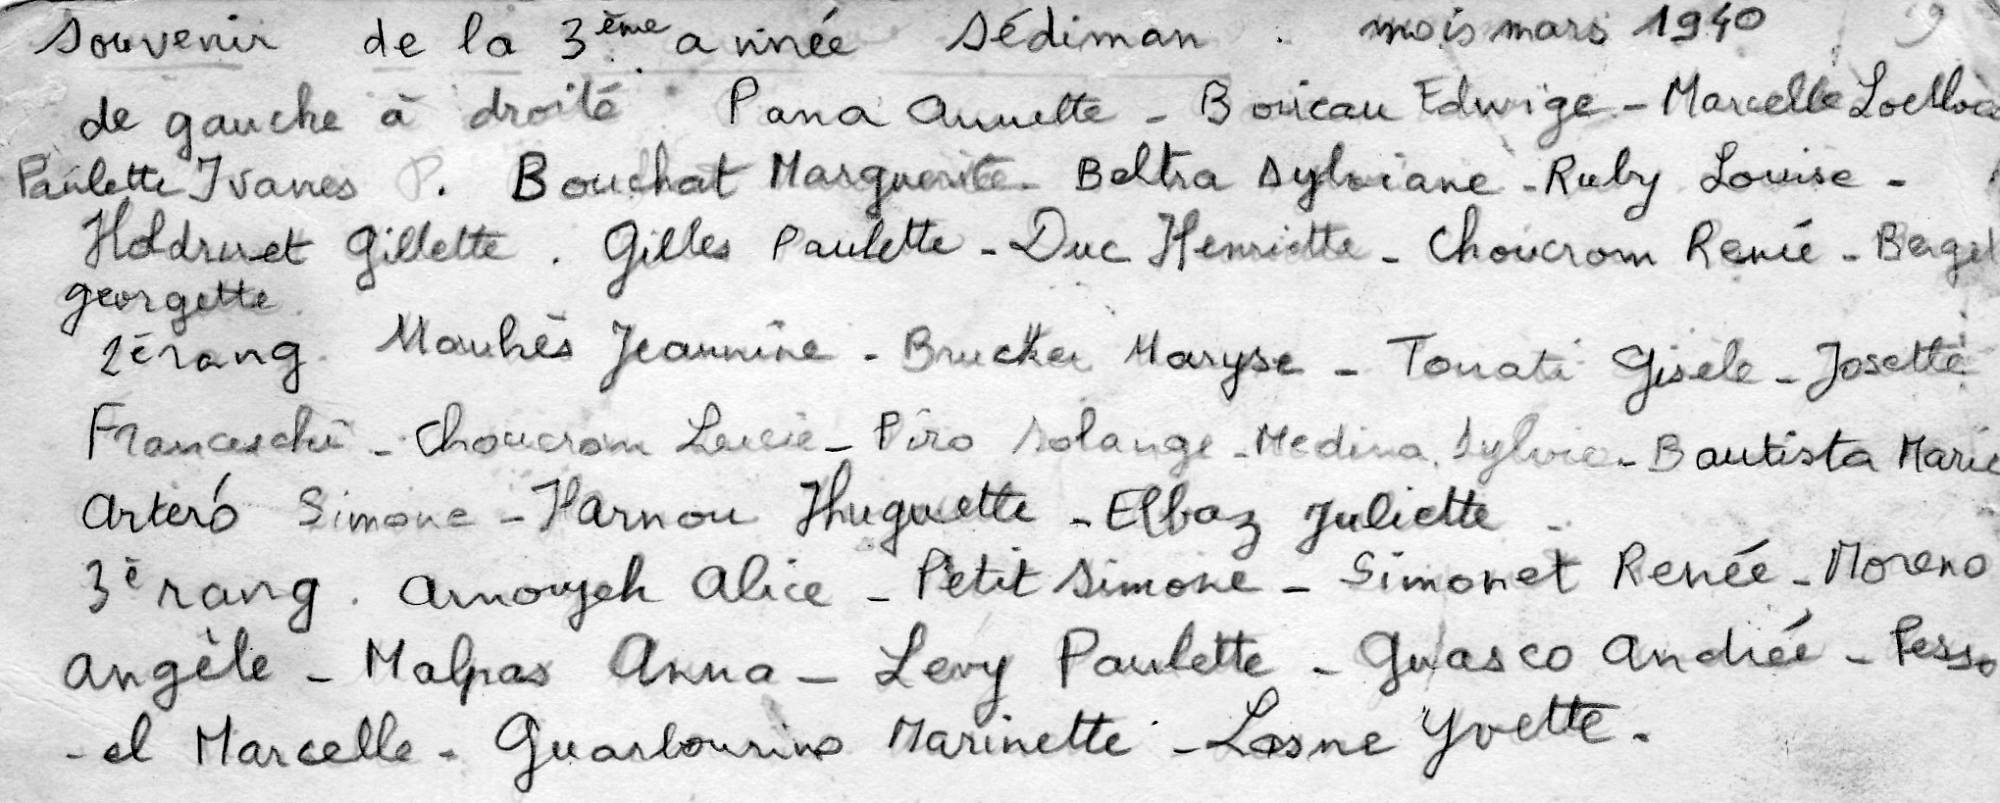 Souvenir de la 3ème année Sédiman. mois mars 1940
de gauche à droite Pana Annette - Boucau Edwige - Marcelle
Paulette Ivanes P. Bouchat Marguerite - Beltra Sylviane - Ruby Louise -
Holdrinet Gillette. Gilles Paulette - Duc Henriette - Choucrom Renée - Bergel
georgette.
2è rang. Mauhès Jeannine - Brucker Maryse - Touati Gisèle - Josette
Franceschi - Choucrom Lucie - Piro Solange - Medina Sylvie - Bautista Marie
Artero Simone - Harnou Huguette - Elbaz Juliette -
3è rang. Amouyeh Alice - Petit Simone - Simonet Renée - Moreno
Angèle - Malpas Anna - Levy Paulette - Guasco Andrée - Pesso
- el Marcelle - Guarbourino Marinette - Losne Yvette.